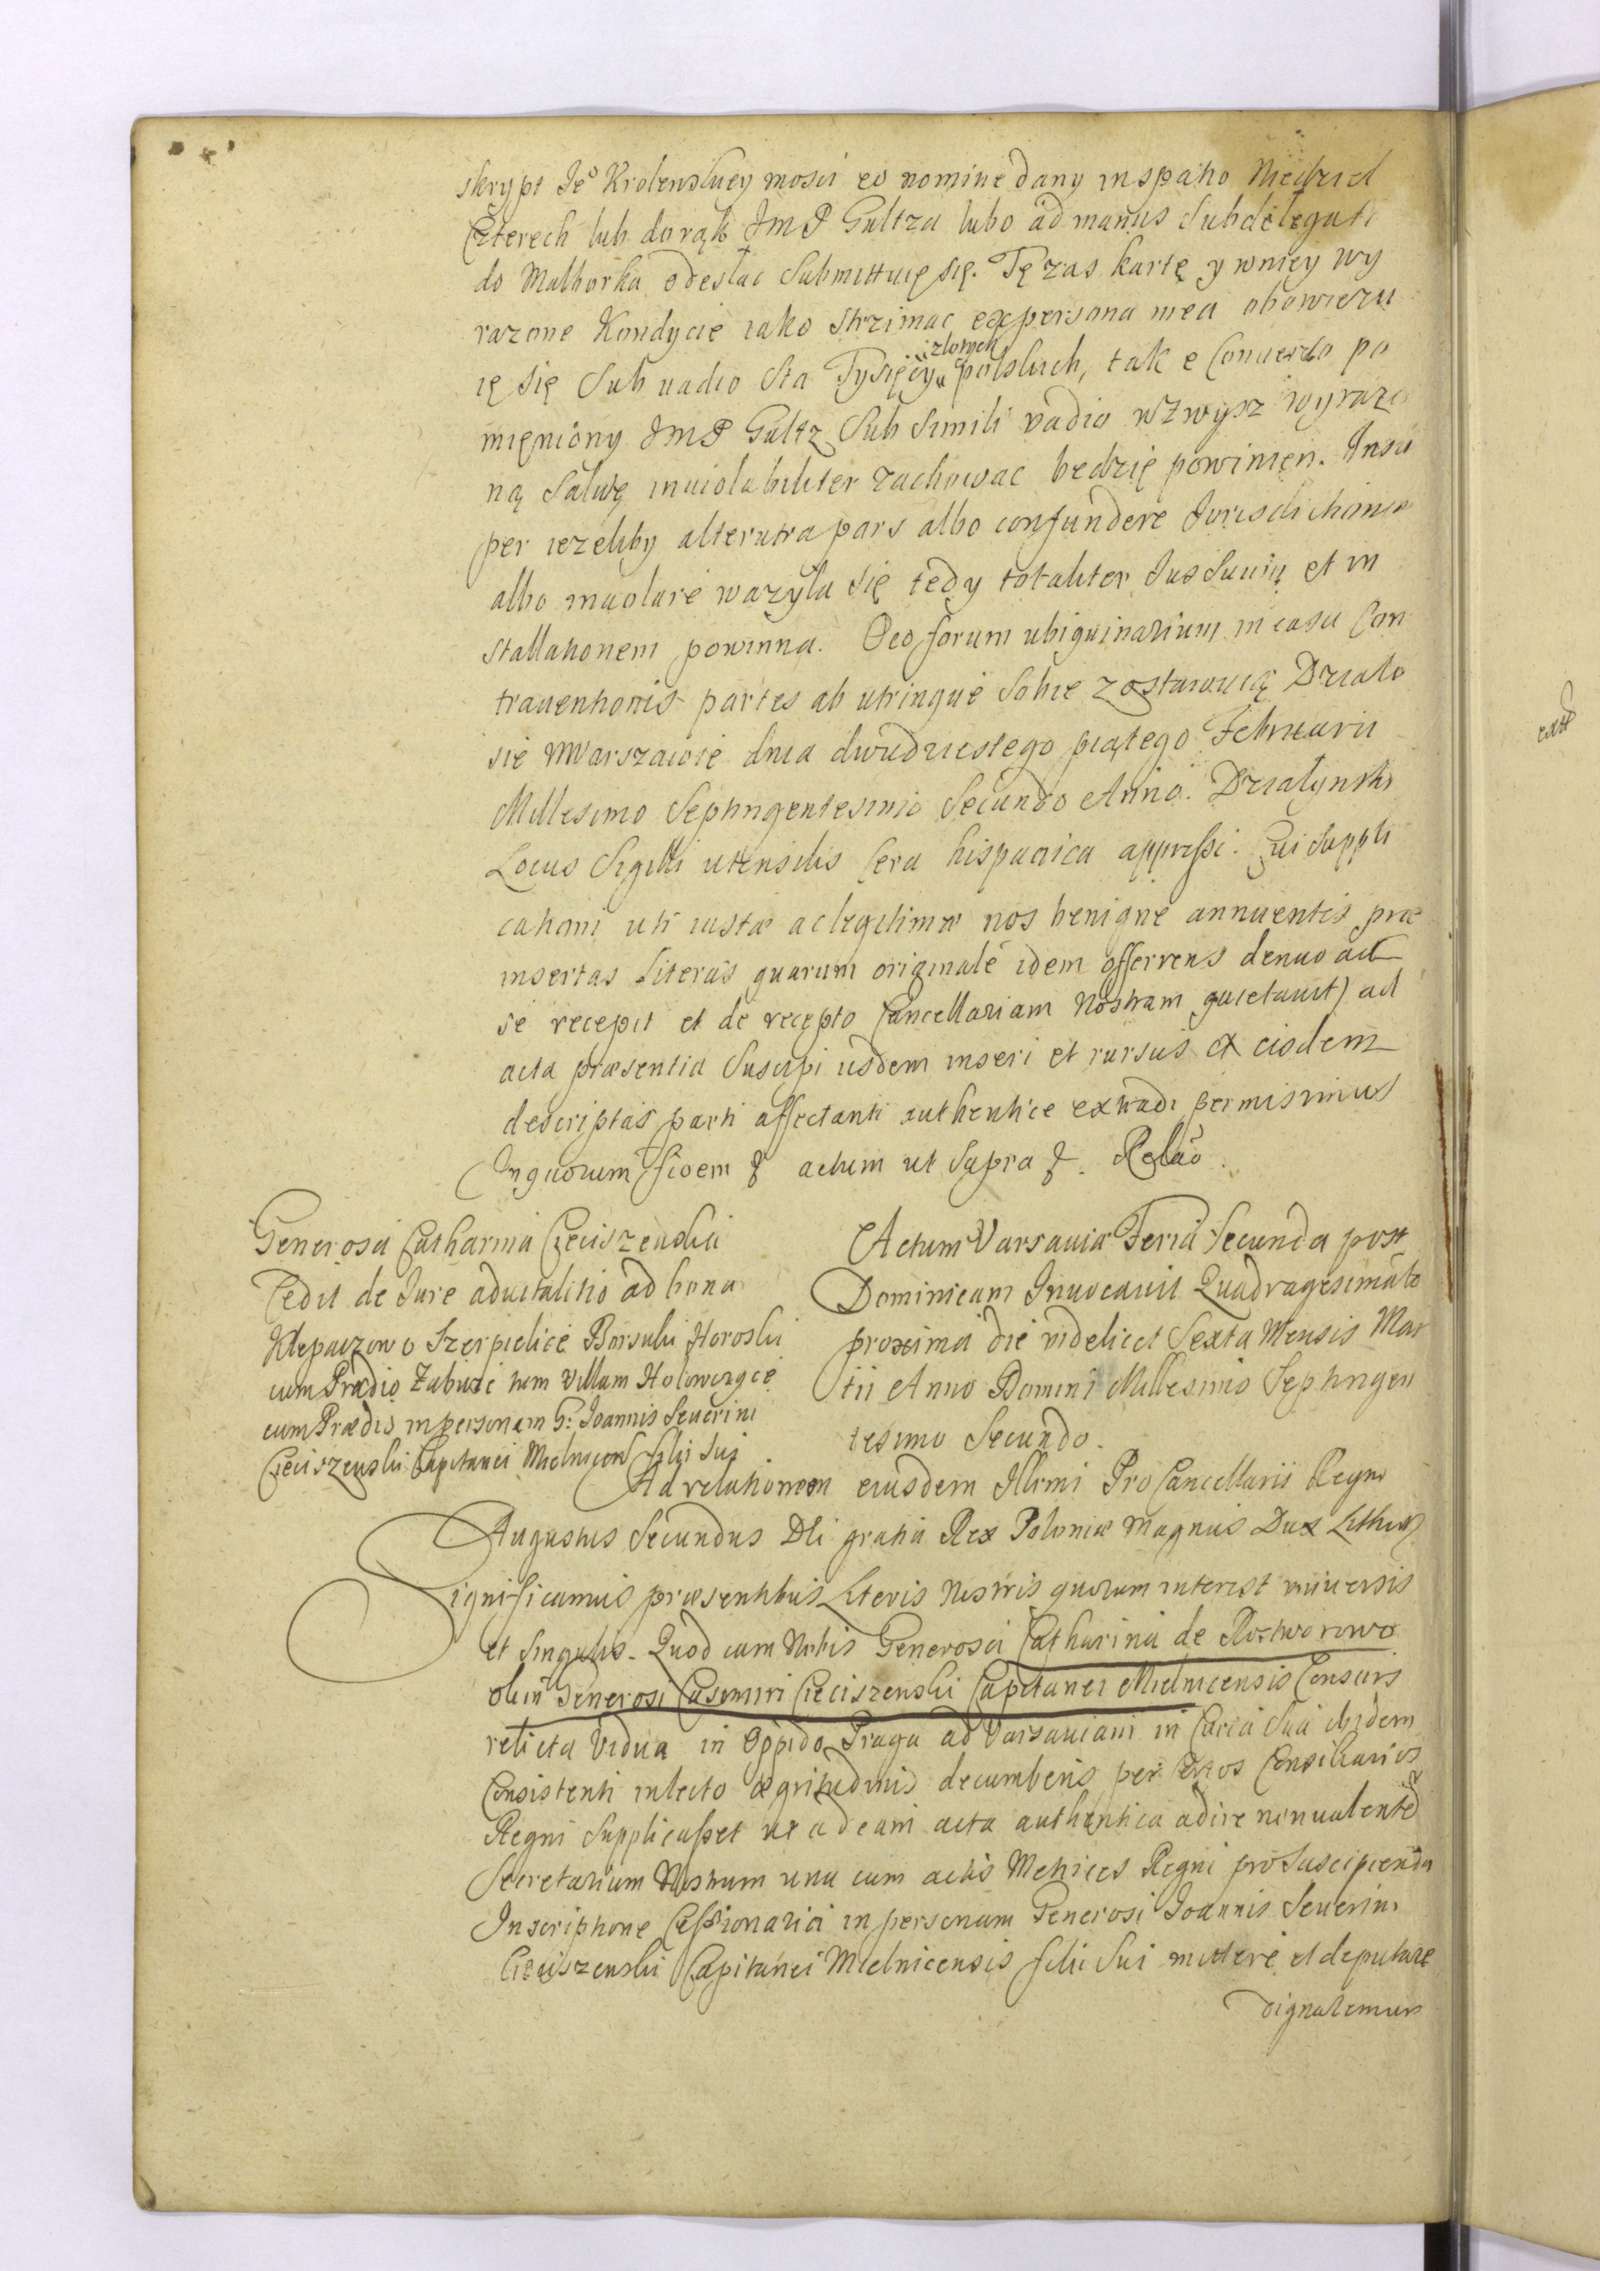 skrypt Jeº Krolewskiey mosci eo nomine dany in spatio Niedziel
Czterech lub do rąk JmP Gultza lubo ad manus Subdelegati
do Malborka odesłac Submittuię się. Tę zas kartę y wniey wy
razone Kondycie iako strzimac ex persona mea obowiezu
ię się Sub vadio Sta Tysięcy złotych polskich, tak e Conuerso po
mięniony JmP Gultz Sub Simili vadio wzwysz wyrazo
ną Salwę inuiolabiliter zachowac będzię powinięn. Insu
per iezeliby alterutra pars albo confundere Jurisdictionem
albo inuolare wazyla się tedy totaliter Jus Suum et in
stallationem powinna. Oco forum ubiquinarium in casu Con
trauentionis partes ab utrinque Sobie zostawuią Działo
się w Warszawie dnia dwudziestego piątego Februarii
Millesimo Septingentesimo Secundo Anno. Działynski
Locus Sigilli utensilis Cera hispanica appressi. Cui Suppli
cationi uti iustæ ac legitimæ nos benigne annuentes præ
insertas Literas quarum originale idem offerrens denuo ad
se recepit et de recepto Cancellariam Nostram quietauit) ad
acta præsentia Suscipi iisdem inseri et rursus ex eisdem
descriptas parti affectanti authentice extradi permisimus
In quorum fidem & actum ut Supra &. Relaõ.
Generosa Catharina Cieciszewska
Cedit de Jure aduitalitio ad bona
Klepaczowo Szerpielice Borsuki Horoszki
cum Prædio Zabuże tum Villam Hołowczyce
cum Prædiis in personam G: Joannis Seuerini
Cieciszewski Capitanei Mielnicen filii sui
Actum Varsauiæ Feria Secunda post
Dominicam Inuocauit Quadragesimale
proxima die videlicet Sexta Mensis Mar
tii Anno Domini Millesimo Septingen
tesimo Secundo.
Ad relationem eiusdem Illrmi ProCancellarii Regni
Augustus Secundus Dei gratia Rex Poloniæ Magnus Dux Lithuæ
Significamus præsentibus Literis Nostris quorum interest vniuersis
et Singulis. Quod cum Nobis Generosa Catharina de Rostworowo
olim Generosi Casimiri Cieciszewski Capitanei Mielnicensis Consuis
relicta Vidua in Oppido Praga ad Varsauiam in Curia Sua ibidem
Consistenti in lecto ægritudinis decumbens per certos Consiliarios
Regni Supplicasset ut ad eam acta authentica adire non ualentẽ
Secretarium Nostrum una cum actis Metrices Regni pro Suscipienda
Inscriptione Cessionaria in personam Generosi Joannis Seuerini
Cieciszewski Capitanei Mielnicensis filii Sui mittere et deputare
dignaremur